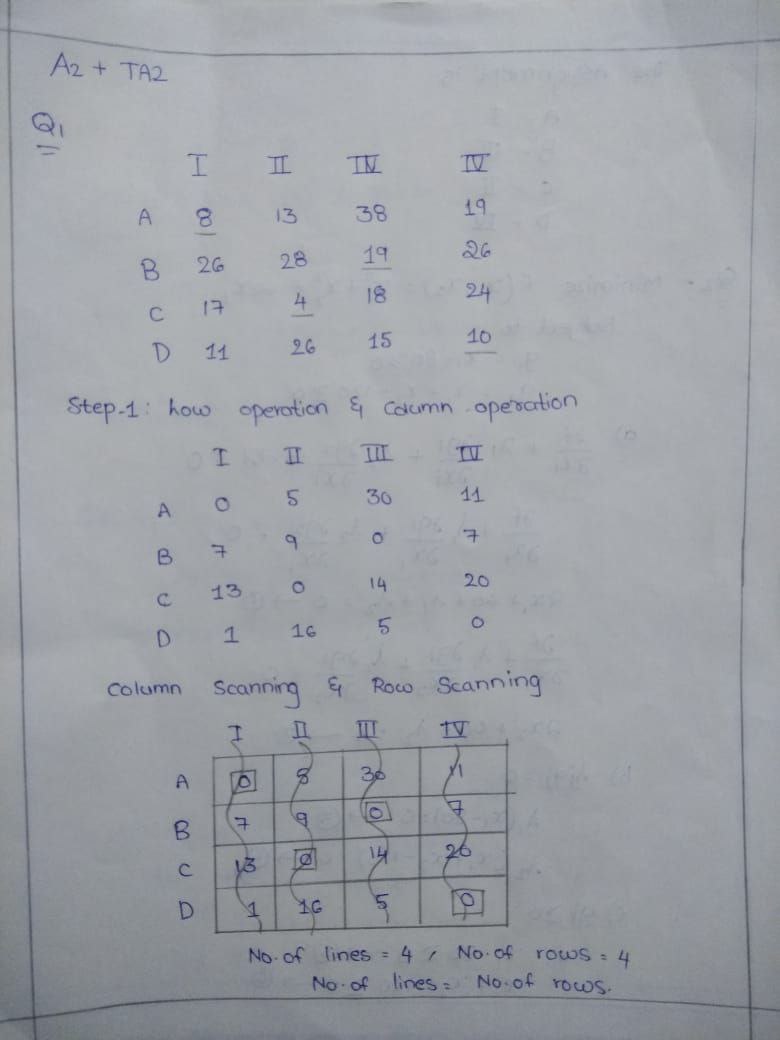 A2 + TA2
Q1
I II IV IV
A 8 13 38 19
B 26 28 19 26
C 17 4 18 24
D 11 26 15 10
Step-1: how operation & Column operation
I II III IV
A 0 5 30 11
B 7 9 0 7
C 13 0 14 20
D 1 16 5 0
Column Scanning & Row Scanning
I II III IV
A 0 8 30 11
B 7 9 0 7
C 13 0 14 20
D 1 16 5 0
No. of lines = 4, No. of rows = 4
No. of lines = No. of rows.